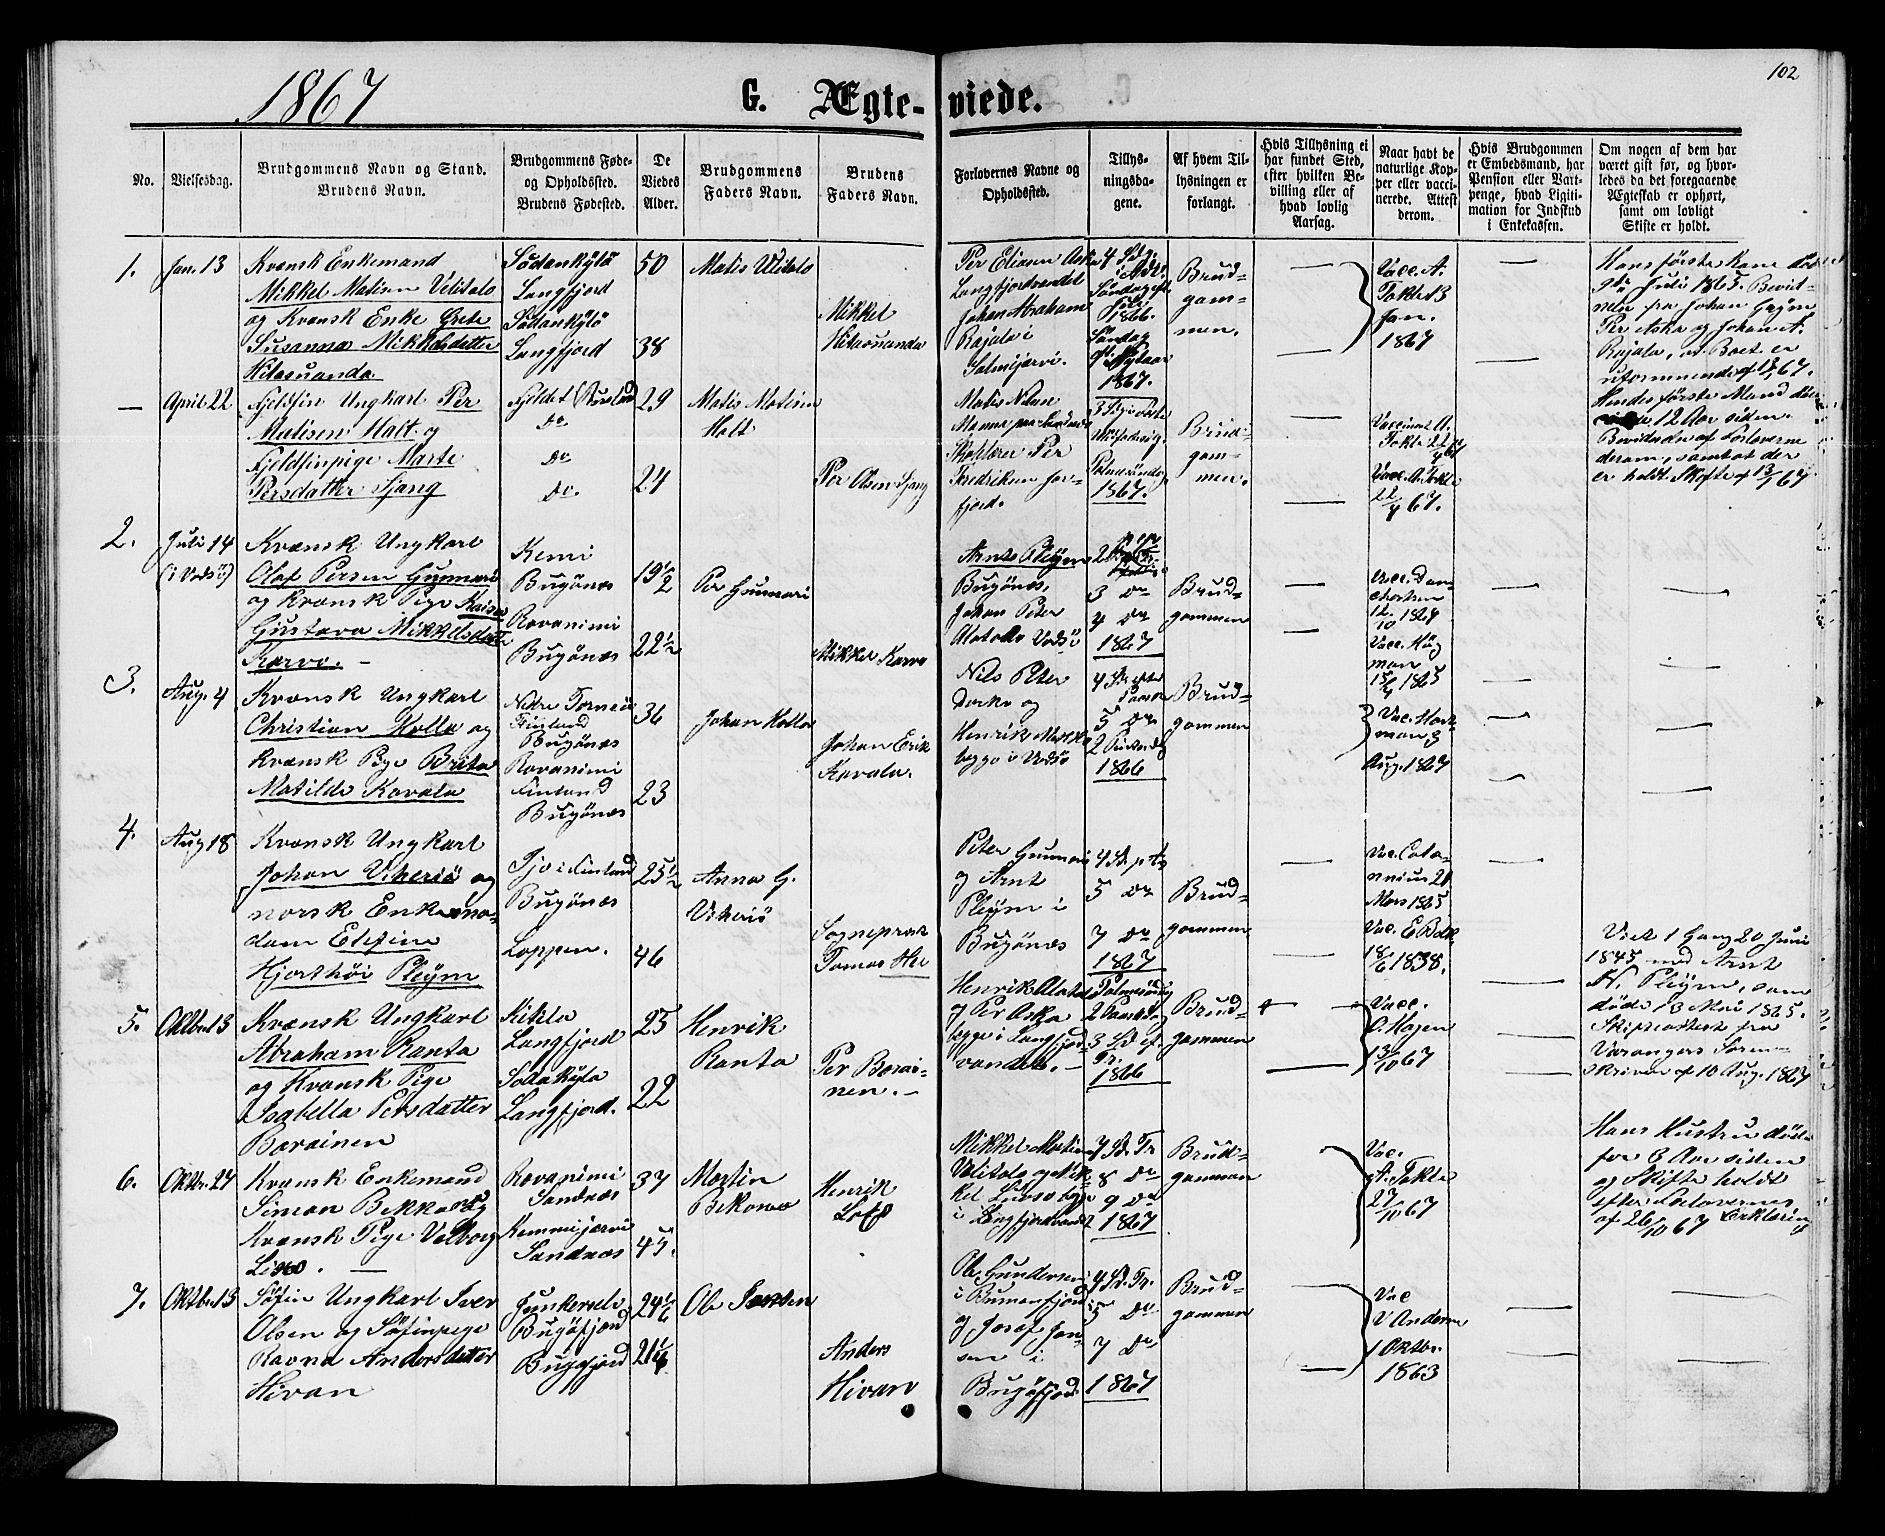 102
1867
G. Ægteviede.
No.
Vielsesdag.
Brudgommens Navn og Stand.
Brudens Navn.
Brudgommens Føde-
og Opholdssted.
Brudens Fødested.
De
Viedes
Alder.
Brudgommens
Faders Navn.
Brudens
Faders Navn.
Forlovernes Navne og
Opholdssted.
Tillys-
ningsda-
gene.
Af hvem Til-
lysningen er
forlangt.
Hvis Tillysning ei
har fundet Sted,
efter hvilken Be-
villing eller af
hvad lovlig
Aarsag.
Naar havt de
naturlige Kop-
per eller vacci-
nerede. Attest
derom.
Hvis Brudgommen
er Embedsmand, har
Pension eller Vart-
penge, hvad Ligiti-
mation for Indskud
i Enkekassen.
Om nogen af dem har
været gift før, og hvor-
ledes da det foregaaende
Ægteskab er ophørt,
samt om lovligt
Skifte er holdt.
1.
Jan. 13
Kvænsk Enkemand
Mikkel Matisen Ulitalo
og Kvænsk Enke Grete
Susanna Mikkelsdatter
Kitasuanda
Sodankylö
Langfjord
Sodankylö
Langfjord
50
38
Matis Ulitalo
Mikkel
Kitasuanda
Per Eliasen Aska
Langfjordvandet
Johan Abraham
Rajala i
Salmijærvi.
4 Sdg. i Adv.
Søndag eft.
Jule
1866.
Søndag
eft. Nytaar
1867.
Brud-
gom-
men.
Vacc. A.
Tokle 13
Jan.
1867
Hans første Kone døde
Juli 1865. Bevit-
nes fra Johan Grym
Per Aska og Johan A.
Rajala, at Boet er
uformuende af 13/1 67.
Hendes første Mand døde
12 Aar siden.
Bevidnes af Forloverne
derom, samt at der
er holdt Skifte af 13/1 67
—
April 22
Fjeldfin Ungkarl Per
Matisen Halt og
Fjeldfinpige Marte
Persdatter Sjang
Fjeldet
Do
Do
Do.
29
24
Matis Matisen
Halt
Per Olsen Sjang
Matis Nilsen
Skoltærer Per
Fredriksen
fjord.
3 S. i Faste
Midfastesdg.
Palmesøndag
1867.
Brud-
gom-
men.
Vaccinert A.
Tokle 22/4 1867
Vacc. A. Tokle
22/4 67.
2.
Juli 14
(i Vadsø)
Kvænsk Ungkarl
Olaf Persen Gunnari
og Kvænsk Pige Kaisa
Gustava Mikkelsdatter
Karvo. —
Kemi
Bugönæs
Rovanimi
Bugönæs
19 1/2
22 1/2
Per Gunnari
Mikkel Karvo
Arnt Pleÿm
Bugönæs,
Johan Peter
Alatalo Vadsö
3 Do
4 Do
1867
Brud-
gommen
Vacc. Dan-
ielsen
12/10 1864
Vacc. Hög
man
15/9 1865
3.
Aug. 4
Kvænsk Ungkarl
Christian Kolla og
Kvænsk Pige Brita
Matilde Kavala
Nedre Torneå
Finland
Bugönæs
Rovanimi
Finland
Bugönæs
36
23
Johan Kolla
Johan Erik
Kavala.
Nils Peter
Dorka og
Henrik
begge i Vadsö
4 S. efter
Paaske
5 Do
2 Pintsedg
1866
Brud-
gommen
Vac. Mark
man 3
Aug. 1867
4.
Aug 18
Kvænsk Ungkarl
Johan Viheriä og
norsk Enkema-
dam Elefine
Hjorthöi Pleÿm
Ijo i Finland
Bugönæs
Loppen.
25 1/2
46
Anna G.
Viheriö
Sognepræst
Tomas
Peter Gunnari
og Arnt
Pleÿm i
Bugönæs
5 Do
7 Do
1867
Brud-
gommen
Vac. Cala-
nnius 20
Mars 1865
Vac. E. Boll
18/6 1838.
Viet 1 Gang 20 Juni
1845 med Arnt
N. Pleÿm, som
döde 13 Mai 1865.
Skifteattest fra
Varangers Soren-
skriver af 10 Aug. 1867
5.
Oktbr. 13
Kvænsk Ungkarl
Abraham Ranta
og Kvænsk Pige
Isabella Persdatter
Barainen
Kitila
Langfjord
Sodakÿla
Langfjord.
25
22
Henrik
Ranta
Per Barai-
nen. —
Henrik Alatalo
og Per Aska
begge i Langfjord-
vandet. —
Palmesöndg
2 Paaskedg
3 Sd. ef.
Tr.
1866
Brud-
gommen
Vacc.
O. Hagen
13/10 67
6.
Oktbr. 27
Kvænsk Enkemand
Simon Bekkala og
Kvænsk Pige Valborg
Lisso. —
Rovanimi
Sandnæs
Kemmijærvi
Sandnæs
37
45.
Martin
Bekkana
Henrik
Mikkel Matisen
Ulitalo og Mik-
kel
i Langfjordvandet
7 Sd. Tr.
8 Do
9 Do
1867
Brud-
gommen
Vac.
A. Tokle
27/10 67
Hans Hustru döde
for 6 Aar siden
og Skifte holdt
efter Forlovernes
Erklæring
af 26/10 67
7.
Oktbr. 13
Söfin Ungkarl Iver
Olsen og Söfinpige
Ravna Andersdatter
Hivan
Junkerselv
Bugöfjord
Bugöfjord
24 1/2
21 1/4
Ole Iversen
Anders
Hivan
Ole Gundersen
i Bumansfjord
og Josef Jan-
sen i
Bugöfjord.
4 Sd. Tr.
5 Do
7 Do
1867
Brud-
gommen
Vac
V Andersen
1 Oktbr.
1863